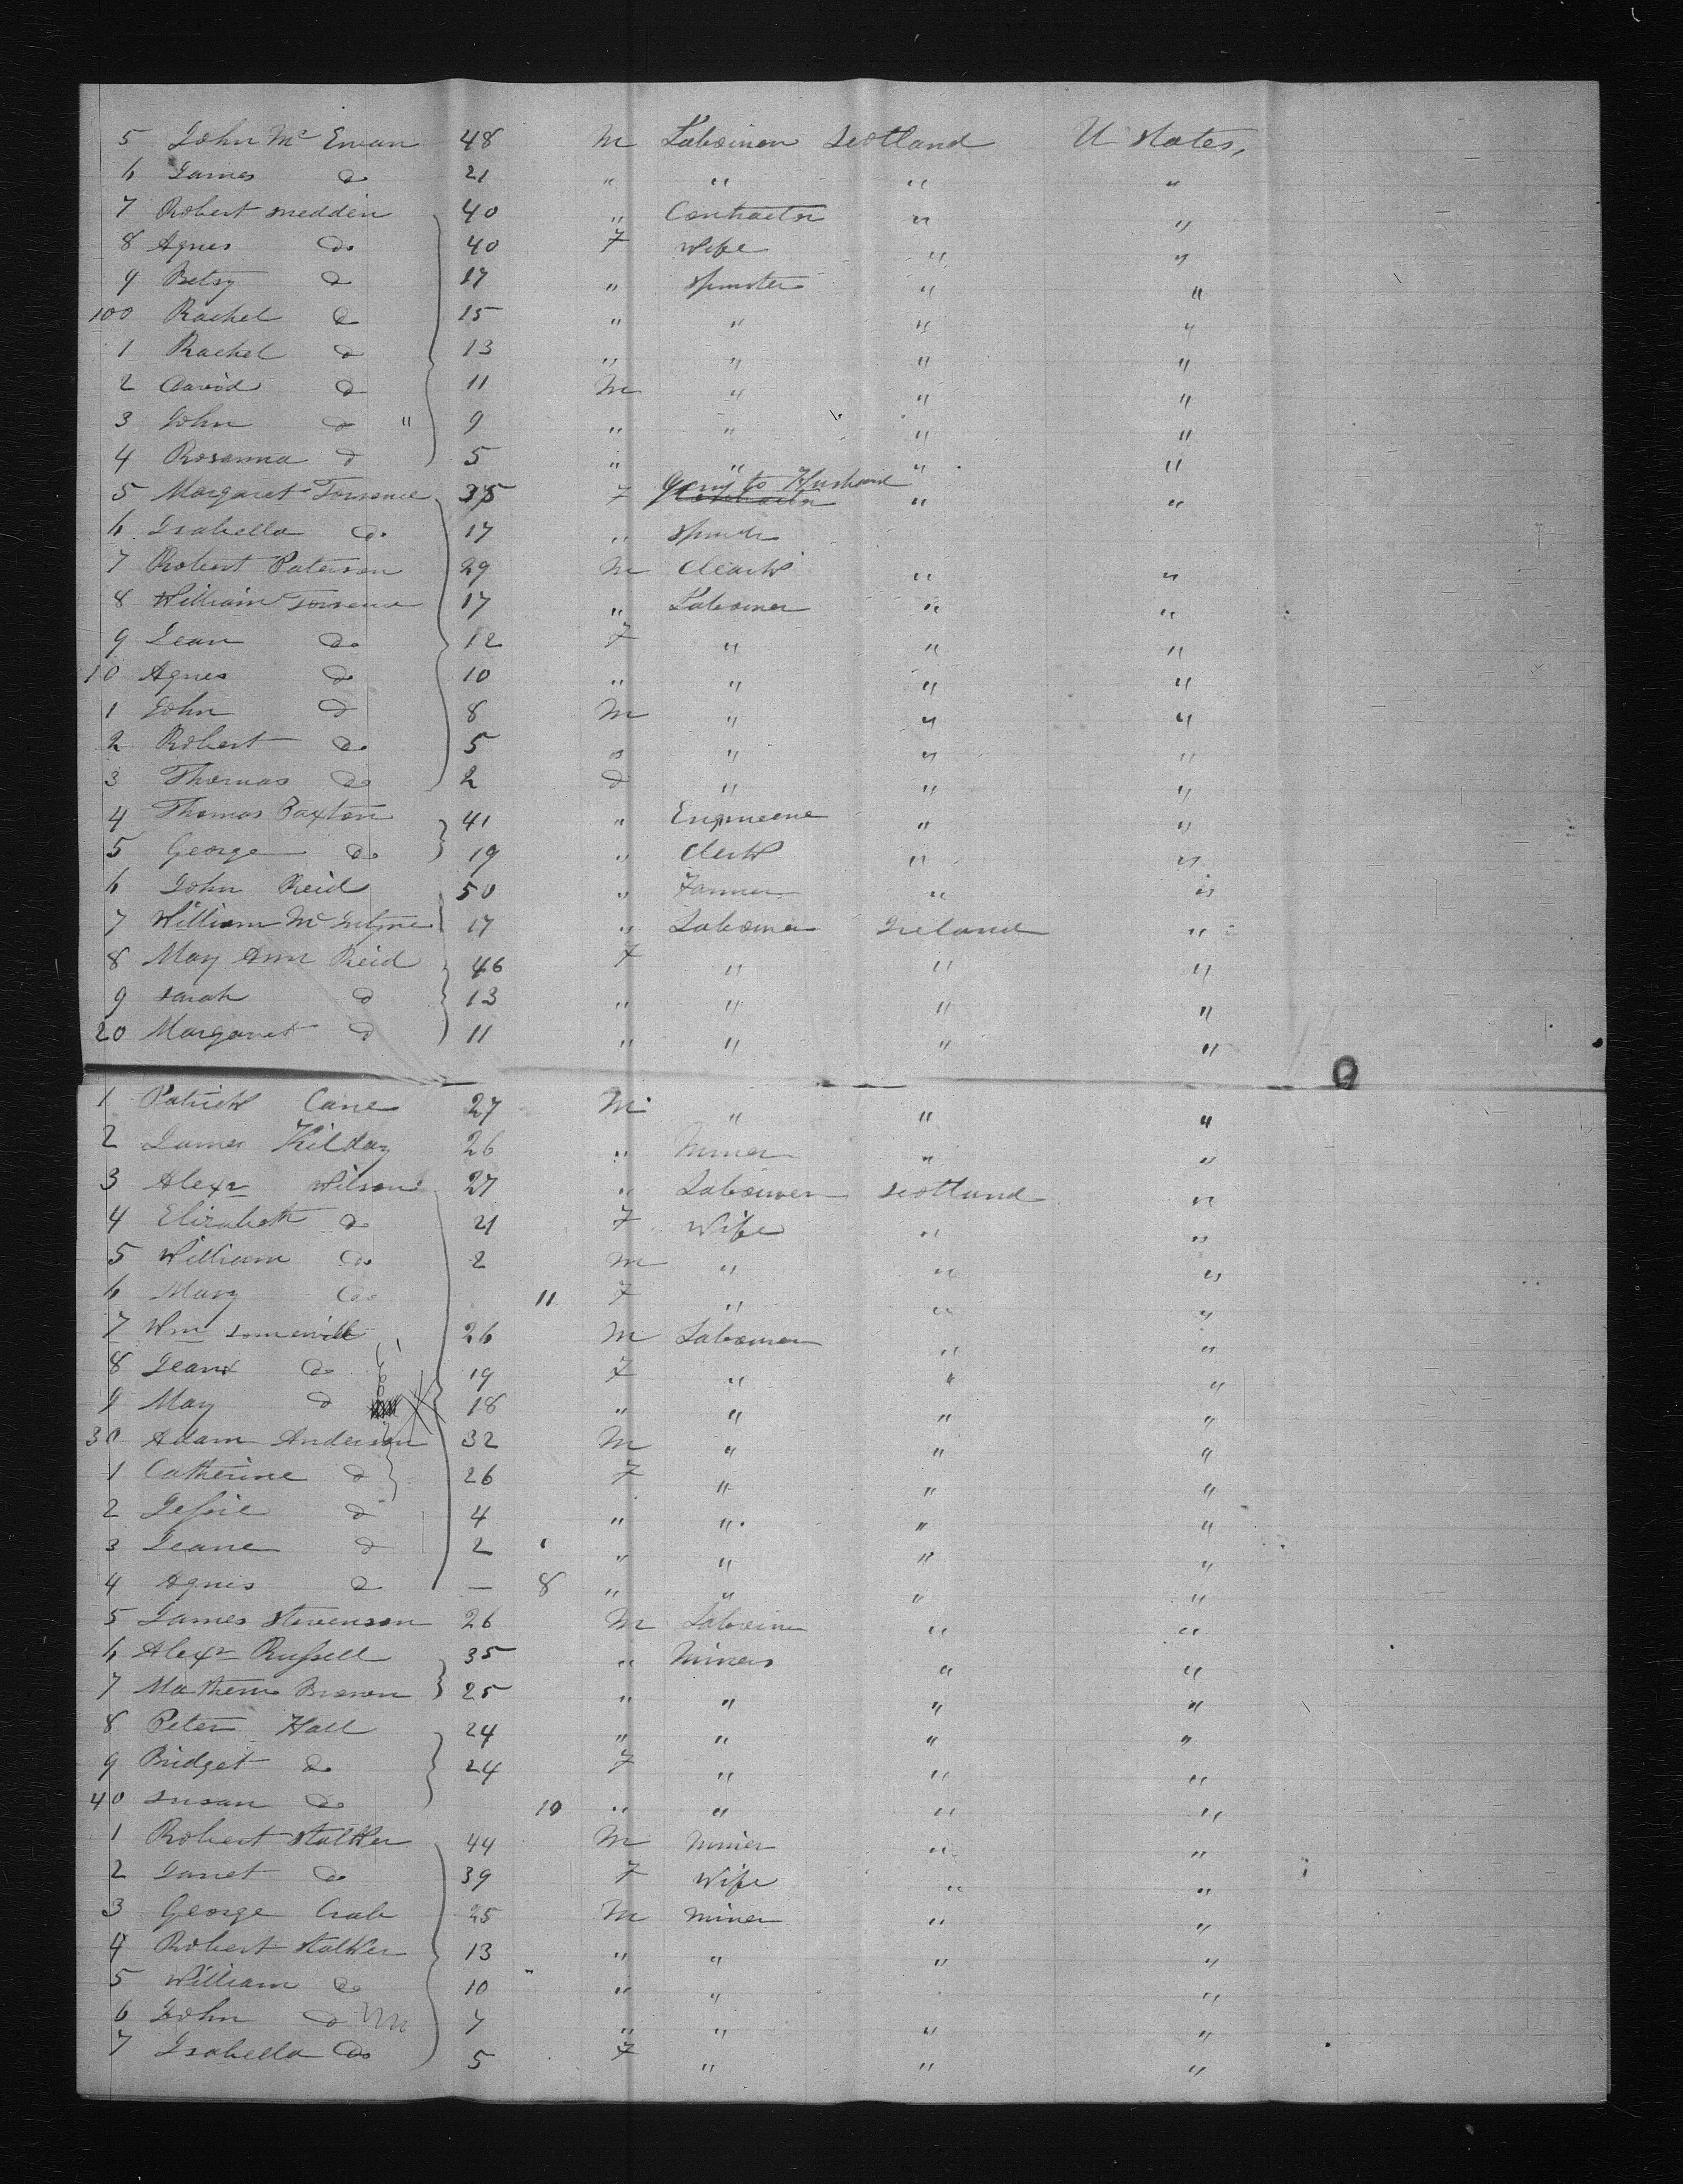 5 John Mc Ewan 48 M Labourer Scotland U States,
6 James do 21 " " " "
7 Robert Sneddin 40 " Contractor " "
8 Agnes do 40 F Wife " "
9 Betsy do 17 " Spinster " "
100 Rachel do 15 " " " "
1 Rachel do 13 " " " "
2 David do 11 M " " "
3 John do " 9 " " " "
4 Rosanna do 5 " " " "
5 Margaret Torrence 35 F going to Husband " "
6 Isabella do 17 " Spinster
7 Robert Paterson 29 M Cleark " "
8 William Torrence 17 " Labourer " "
9 Jean do 12 F " " "
10 Agnes do 10 " " " "
1 John do 8 M " " "
2 Robert do 5 " " " "
3 Thomas do 2 do " " "
4 Thomas Paxton 41 " Engineene " "
5 George do 19 " Clerk " "
6 John Reid 50 " Farmer " "
7 William Mc Intyre 17 " Labourer Ireland "
8 Mary Ann Reid 46 F " " "
9 Sarah do 13 " " " "
20 Margaret do 11 " " " "
1 Patrick Cane 27 M " " "
2 James Kilday 26 " Miner " "
3 Alexr Wilson 27 " Labourer Scotland "
4 Elizabeth do 21 F Wife " "
5 William do 2 M " " "
6 Mary do 11 F " " "
7 Wm Somervill 26 M Labourer " "
8 Jean do 19 F " " "
9 May do 18 " " " "
30 Adam Anderson 32 M " " "
1 Catherine do 26 F " " "
2 Jessie do 4 " " " "
3 Jeane do 2 " " " "
4 Agnes do — 8 " " " "
5 James Stevenson 26 M Labourer " "
6 Alexr Russell 35 " Miners " "
7 Mathew Brown 25 " " " "
8 Peter Hall 24 " " " "
9 Bridget do 24 F " " "
40 Susan do 10 " " " "
1 Robert Stalker 44 M Miner " "
2 Janet do 39 F Wife " "
3 George Crab 25 M Miner " "
4 Robert Stalker 13 " " " "
5 William do 10 " " "
6 John do M 7 " " " "
7 Isabella do 5 F " " "